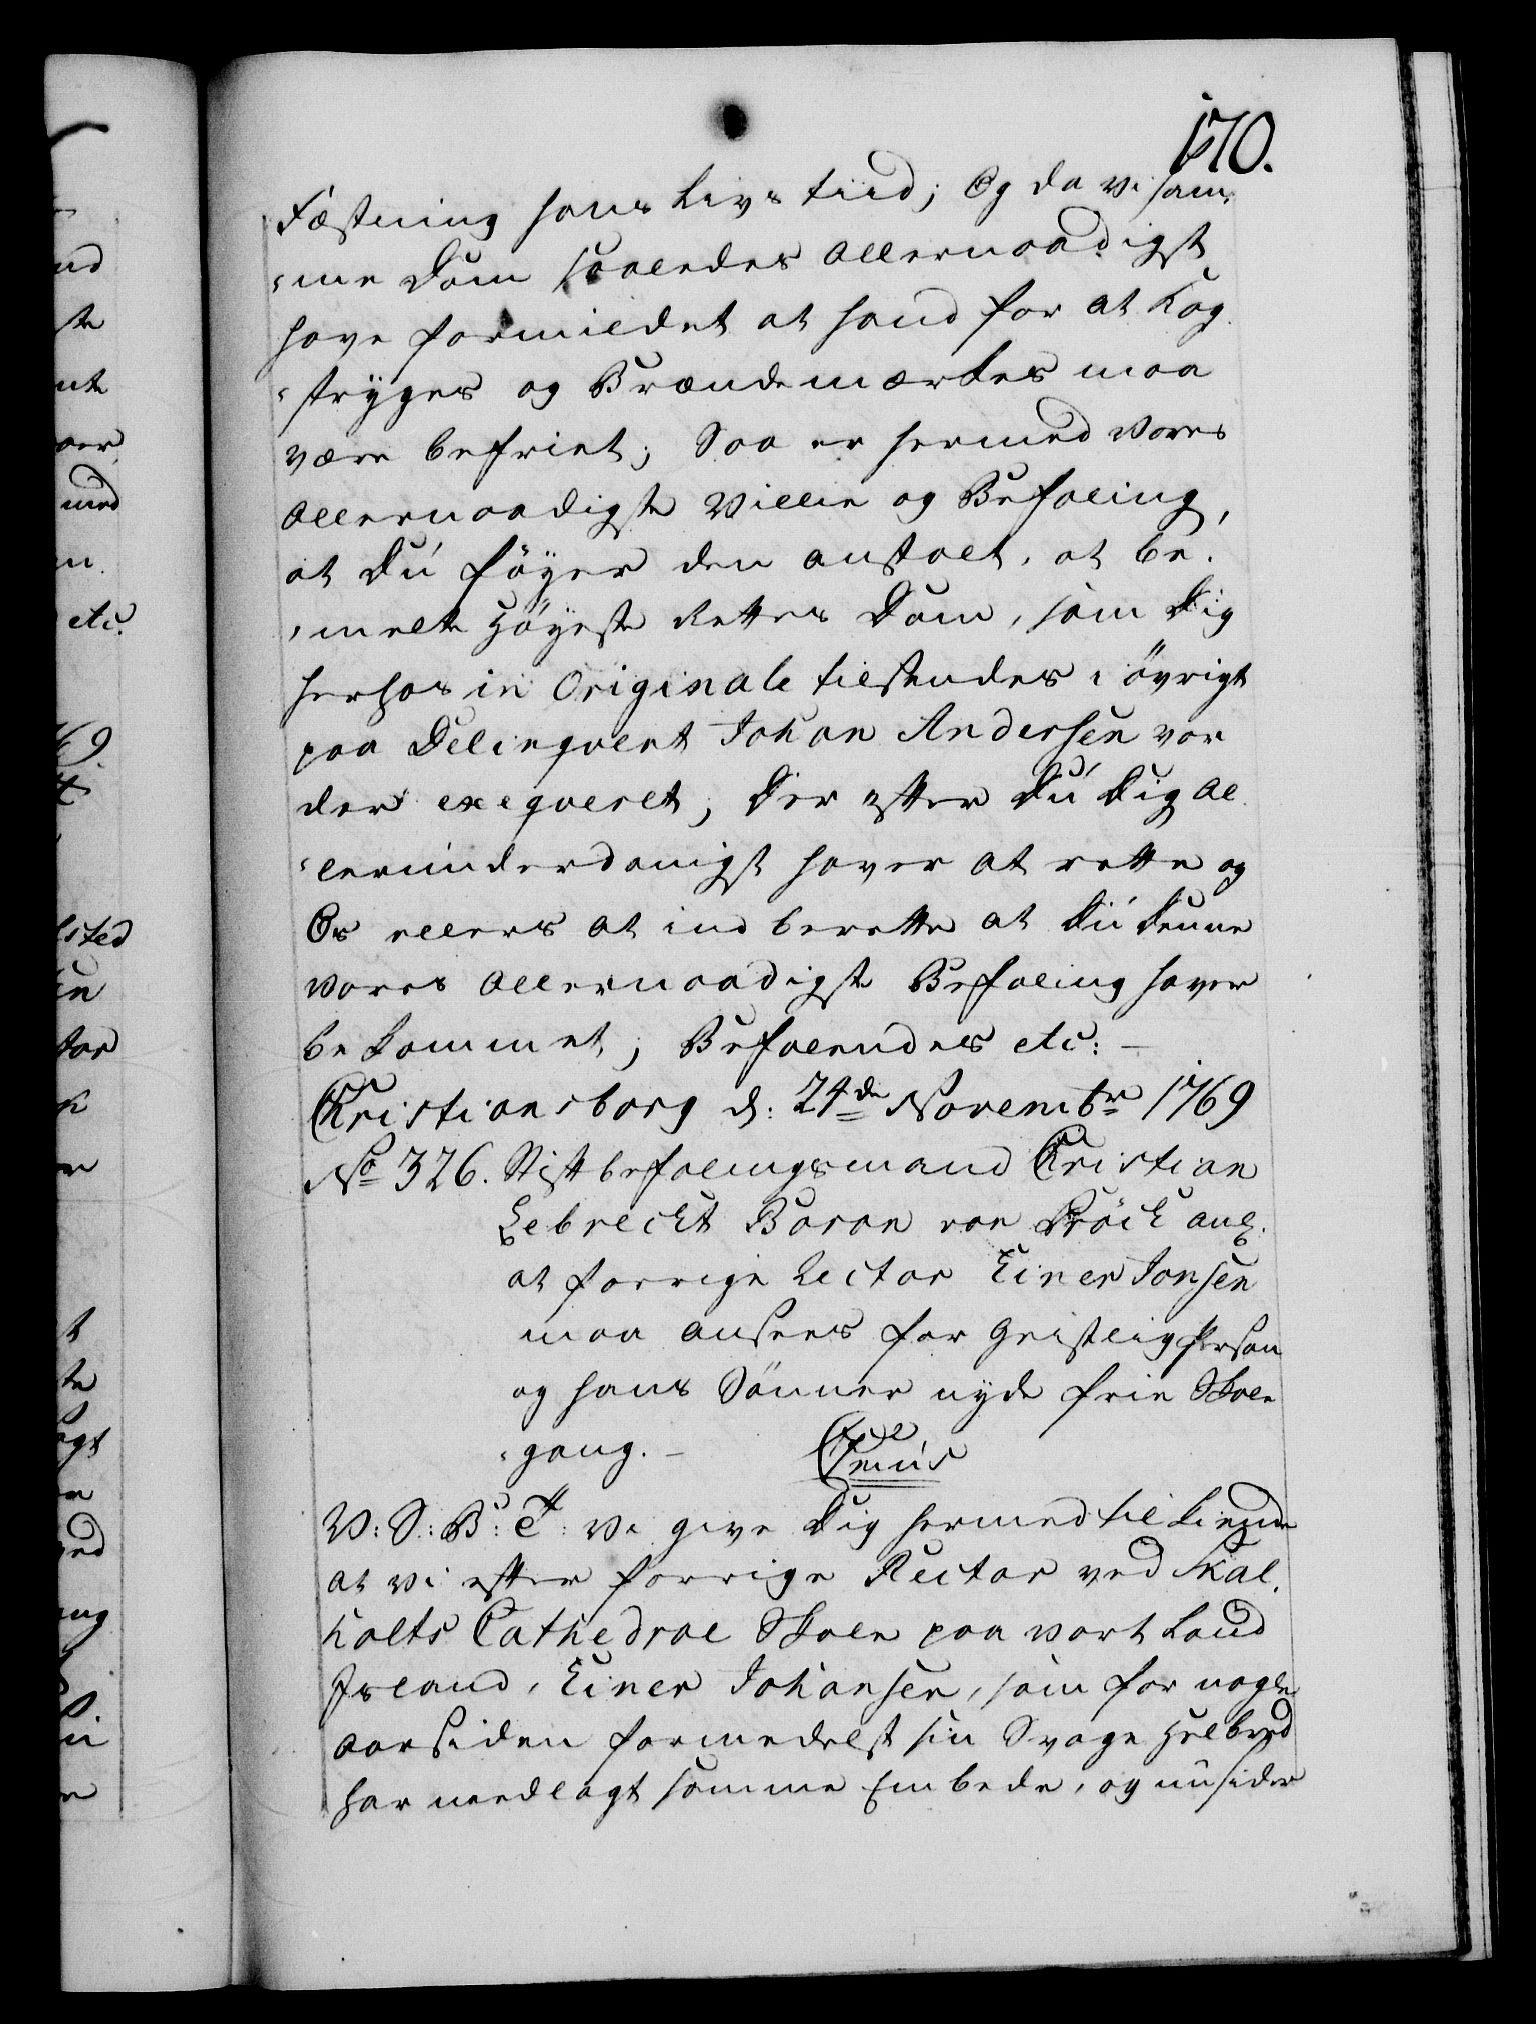 170.
Fæstning hans Livs tiid; Og da vi sam¬
¬me Dom saaledes allernaadigst
have formildet at hand for at Kag¬
¬stryges og Brændemærkes maa
være befriet; Saa er hermed vores
allernaadigste Villie og Befaling,
at Dú föÿer den anstalt, at be¬
¬melte Höÿeste Rettes Dom, som Dig
herhos in Originale tilsendes i övrigt
paa Delinqvent Johan Andersen vor
der exeqveret, Der efter Dú Dig al¬
¬lerúnderdanigst haver at rette og
Os ellers at ind berette at Dú denne
vores allernaadigste Befaling haver
bekommet; Befalendes etc: —
Christiansborg d: 24de Novembr 1769
No 326. Stiftbefalingsmand Christian
Lebrecht Baron von Pröck ang:
at forrige Rector Einer Jonsen
maa ansees for Geistlig Person
og hans Sönner nyde frie Skole
¬gang. —
V: S: B: T: Vi give Dig hermed til kiende
at vi efter forrige Rector ved Skal¬
holts Cathedral Skole paa vort Land
Island, Einer Johansen, som for nogle
aar siden formedelst sin Svage Helbred
har nedlagt samme Embede, og nú sider
etc.